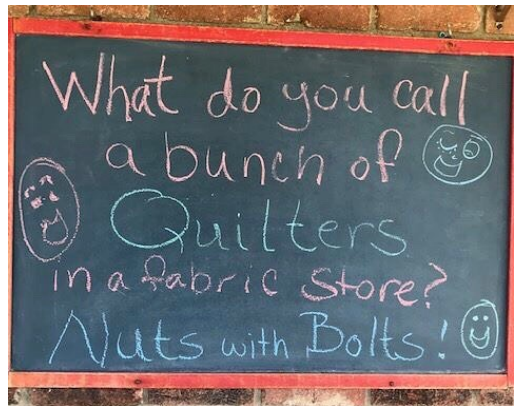 What do you call
a bunch of
Quilters
in a fabric Store?
Nuts with Bolts!